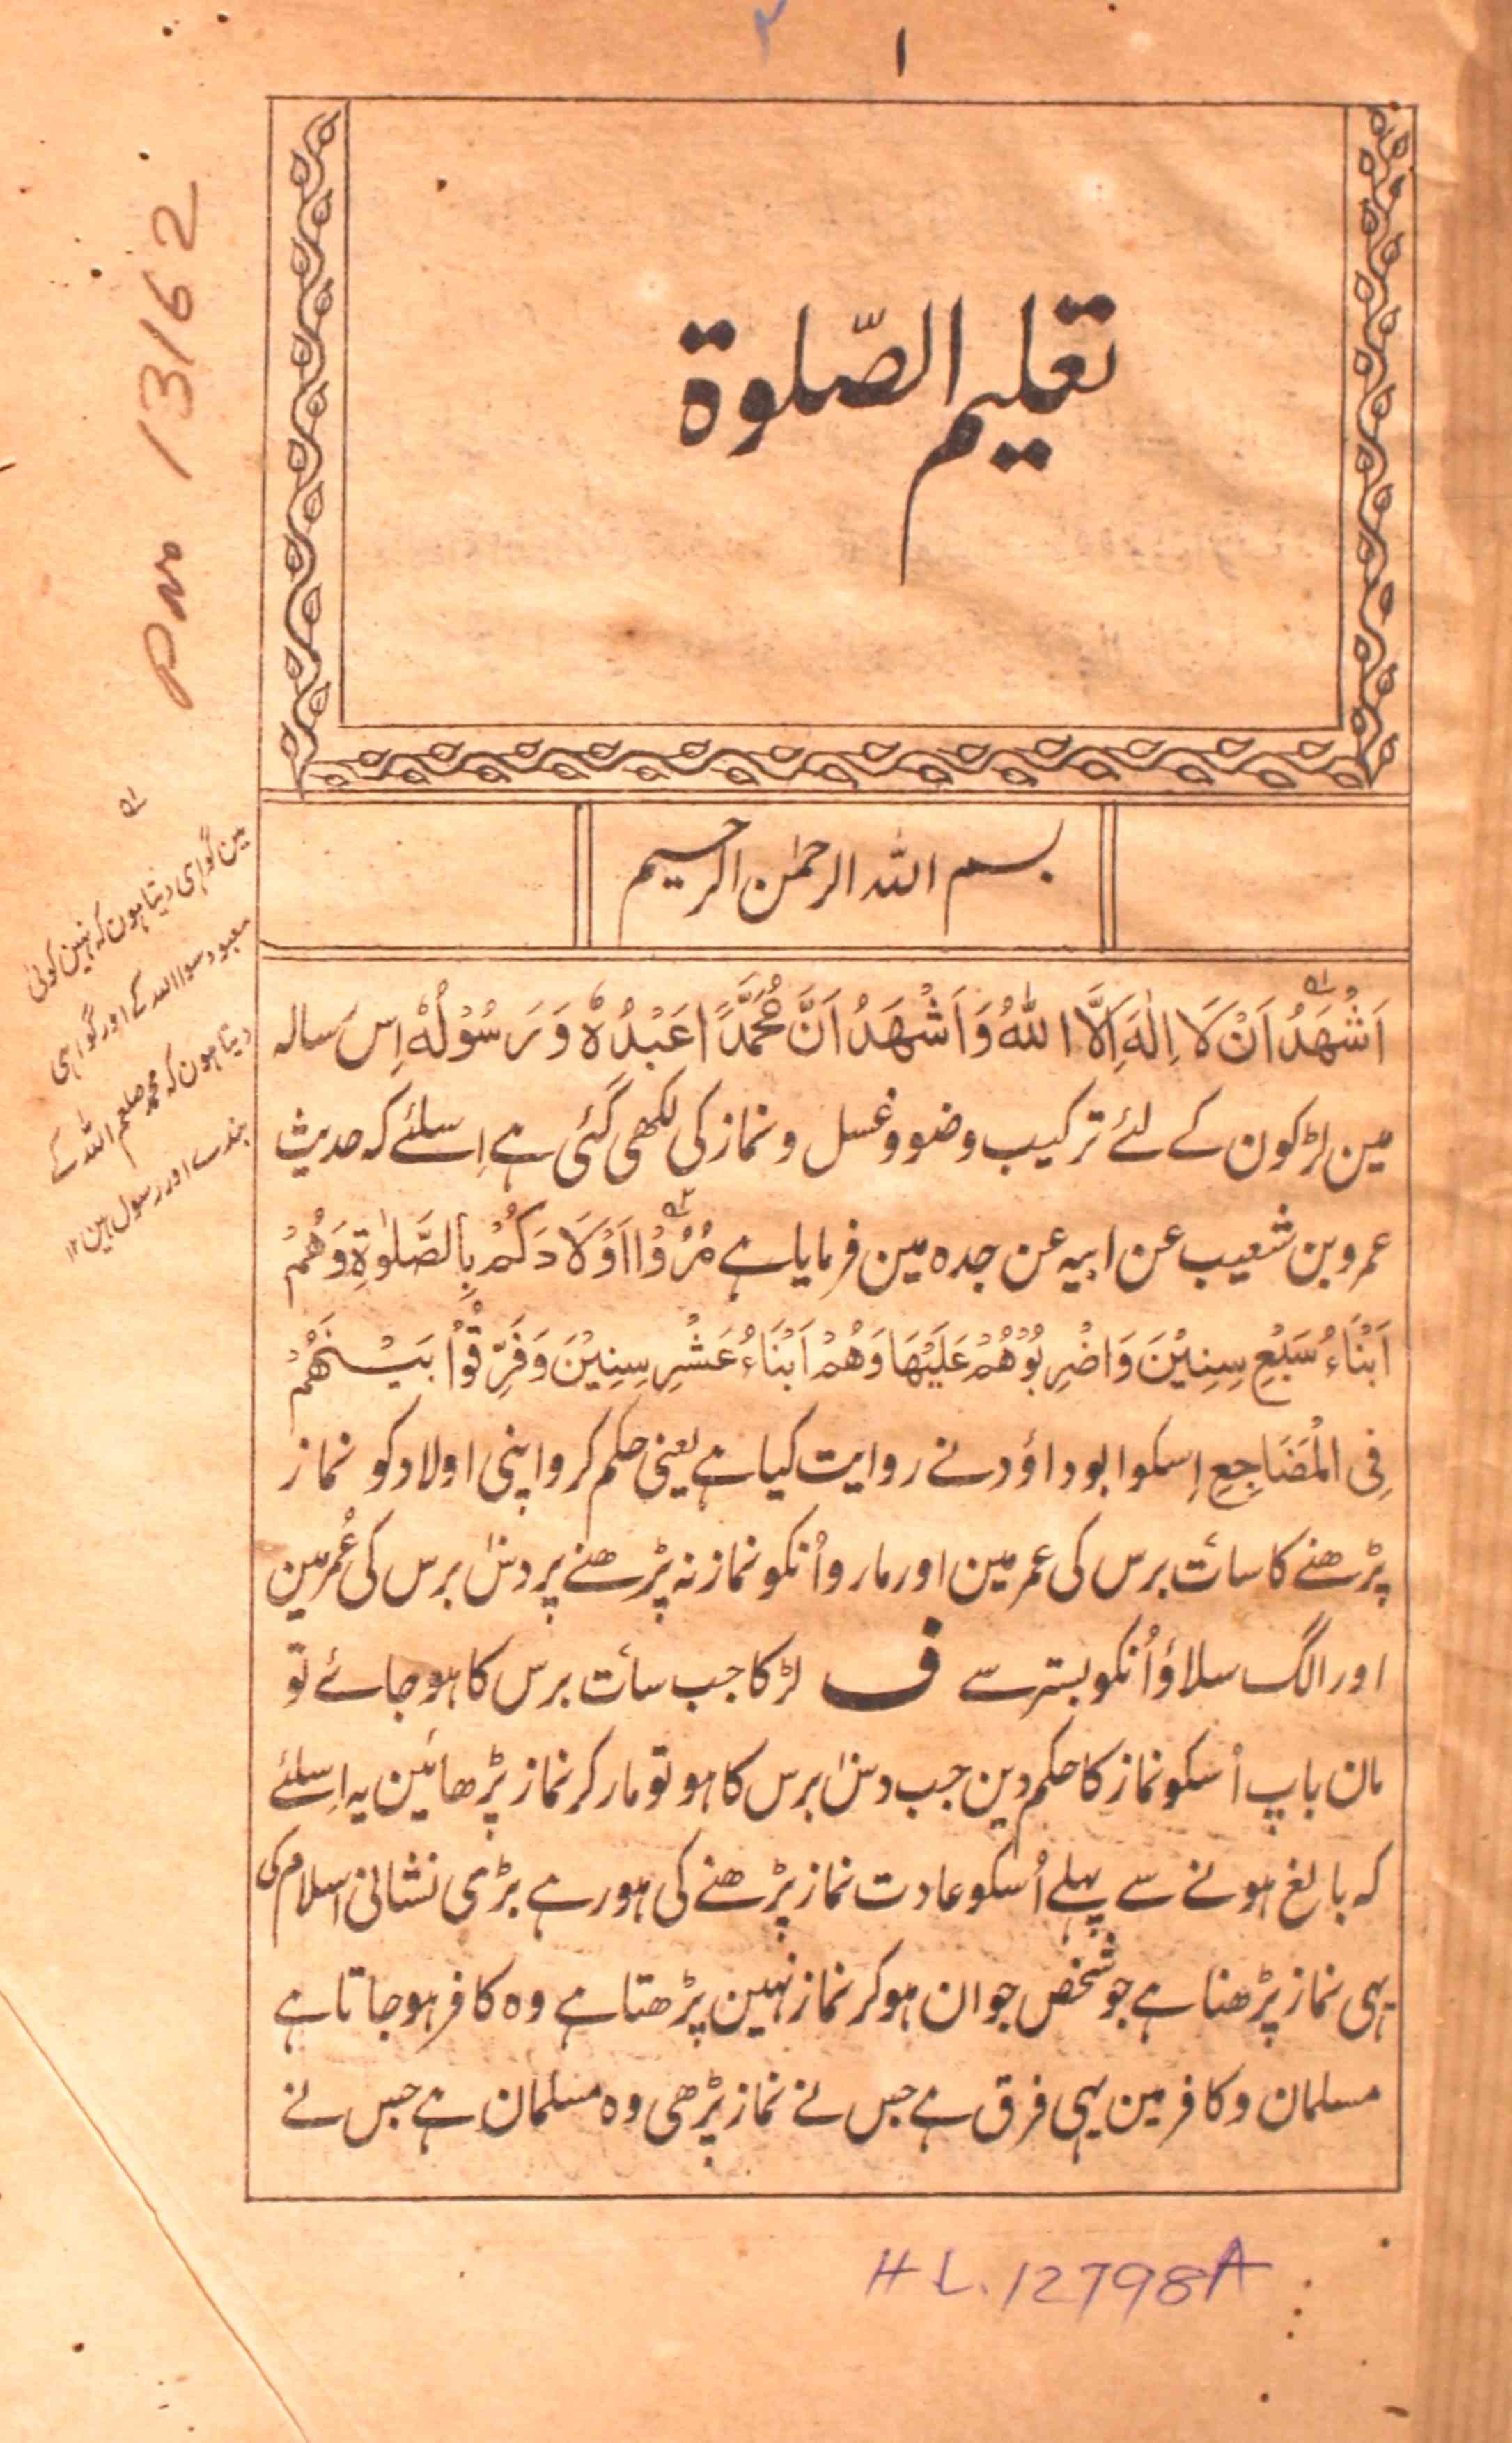 ۲
۱
تعلیم الصّلوۃ
بسم اللہ الرحمٰن الرحیم
اَشْہَدُ اَنْ لَا اِلٰہَ اِلَّا اللہُ وَاَشْہَدُ اَنَّ مُحَمَّدًا عَبْدُہٗ وَرَسُوْلُہٗ اِس رسالہ
مین لڑکون کے لئے ترکیب وضو وغسل و نماز کی لکھی گئی ہے اِسلئے کہ حدیث
عمرو بن شعیب عن ابیہ عن جدہ مین فرمایا ہے مُرُوْا اَوْلَادَکُمْ بِالصَّلٰوۃِ وَہُمْ
اَبْنَاءُ سَبْعِ سِنِیْنَ وَاضْرِبُوْہُمْ عَلَیْہَا وَہُمْ اَبْنَاءُ عَشْرِ سِنِیْنَ وَفَرِّقُوْا بَیْنَہُمْ
فِی الْمَضَاجِعِ اِسکو ابوداؤد نے روایت کیا ہے یعنی حکم کرو اپنی اولاد کو نماز
پڑھنے کا سات برس کی عمر مین اور مارو اُنکو نماز نہ پڑھنے پر دس برس کی عُمر مین
اور الگ سلاؤ اُنکو بستر سے ف لڑکا جب سات برس کا ہو جائے تو
مان باپ اُسکو نماز کا حکم دین جب دس برس کا ہو تو مار کر نماز پڑھائین یہ اِسلئے
کہ بالغ ہونے سے پہلے اُسکو عادت نماز پڑھنے کی ہو رہے بڑی نشانی اسلام کی
یہی نماز پڑھنا ہے جو شخص جوان ہو کر نماز نہین پڑھتا ہے وہ کافر ہو جاتا ہے
مسلمان و کافر مین یہی فرق ہے جس نے نماز پڑھی وہ مسلمان ہے جس نے
مین گواہی دیتا ہون کہ نہین کوئی
معبود سوا اللہ کے اور گواہی
دیتا ہون کہ محمد صلعم اللہ کے
بندے اور رسول ہین ۱۲
13162
H L. 12798A